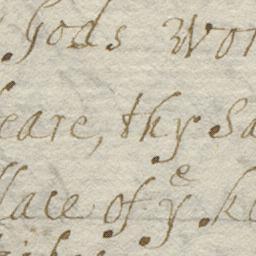 Gods Wor
eare, thy Sa
lace of yᵉ k